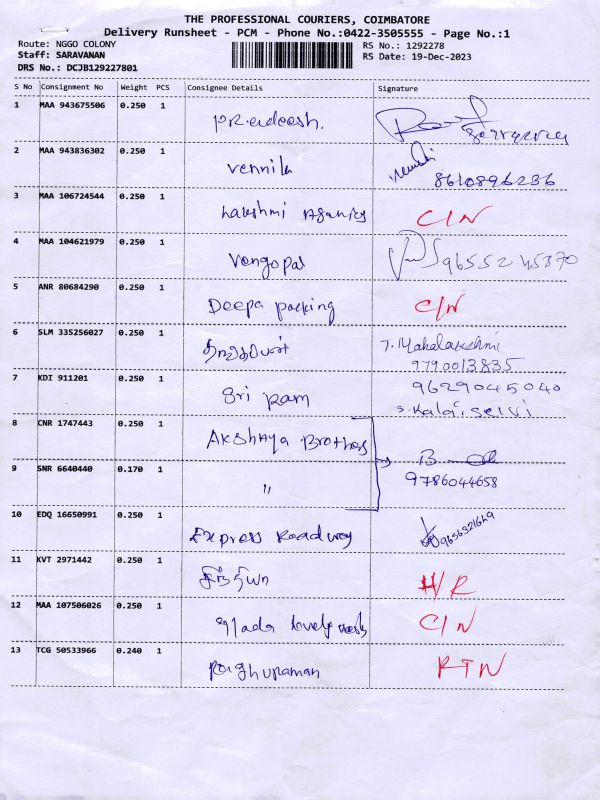 THE PROFESSIONAL COURIERS, COIMBATORE
Delivery Runsheet - PCM - Phone No.:0422-3505555 - Page No.:1
Route: NGGO COLONY RS No.: 1292278
Staff: SARAVANAN RS Date: 19-Dec-2023
DRS No.: DCJB129227801
S No Consignment No Weight PCS Consignee Details Signature
1 MAA 943675506 0.250 1
2 MAA 943836302 0.250 1 Vennila 8610896236
3 MAA 106724544 0.250 1 Lakshmi C/N
4 MAA 104621979 0.250 1 Vengopal 9655245370
5 ANR 80684290 0.250 1 Deepa packing C/N
6 SLM 335256027 0.250 1 T. Mahalakshmi
9790013835
7 KDI 911201 0.250 1 Sri Ram 9629045040
S. Kalai selvi
8 CNR 1747443 0.250 1 Akshaya Brothers
9 SNR 6640440 0.170 1 " 9786044658
10 EDQ 16650991 0.250 1 Express Roadway 9656321649
11 KVT 2971442 0.250 1 H/R
12 MAA 107506026 0.250 1 C/N
13 TCG 50533966 0.240 1 Raghuraman RTN